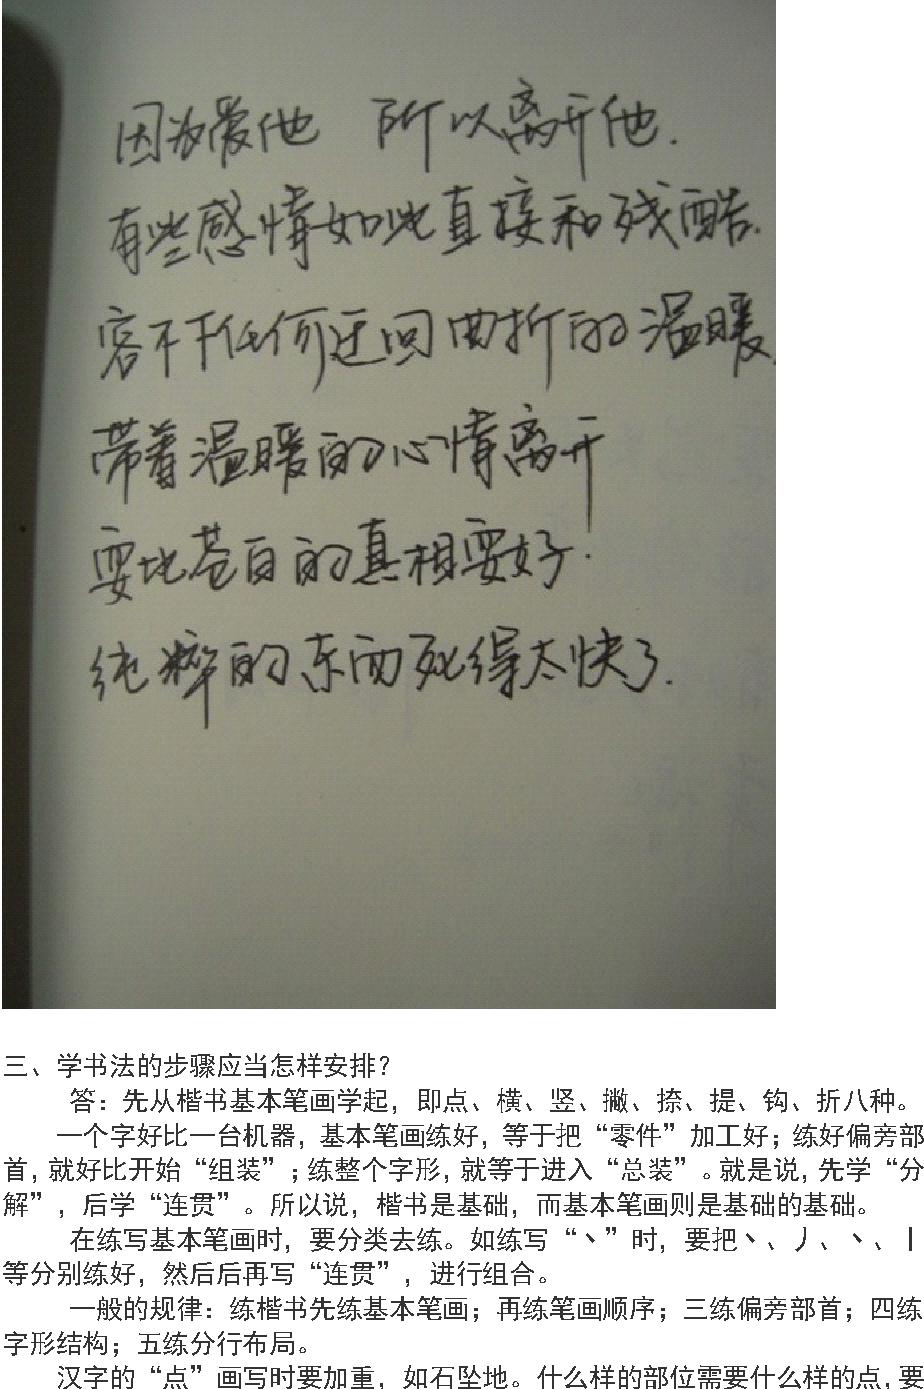 因为爱他 所以离开他.
有些感情如此直接和残酷.
容不下任何迂回曲折的温暖.
带着温暖的心情离开
要比苍白的真相要好.
纯粹的东西死得太快了.
三、学书法的步骤应当怎样安排？
答：先从楷书基本笔画学起，即点、横、竖、撇、捺、提、钩、折八种。
一个字好比一台机器，基本笔画练好，等于把“零件”加工好；练好偏旁部
首，就好比开始“组装”；练整个字形，就等于进入“总装”。就是说，先学“分
解”，后学“连贯”。所以说，楷书是基础，而基本笔画则是基础的基础。
在练写基本笔画时，要分类去练。如练写“丶”时，要把丶、丿、丶、丨
等分别练好，然后后再写“连贯”，进行组合。
一般的规律：练楷书先练基本笔画；再练笔画顺序；三练偏旁部首；四练
字形结构；五练分行布局。
汉字的“点”画写时要加重，如石坠地。什么样的部位需要什么样的点，要